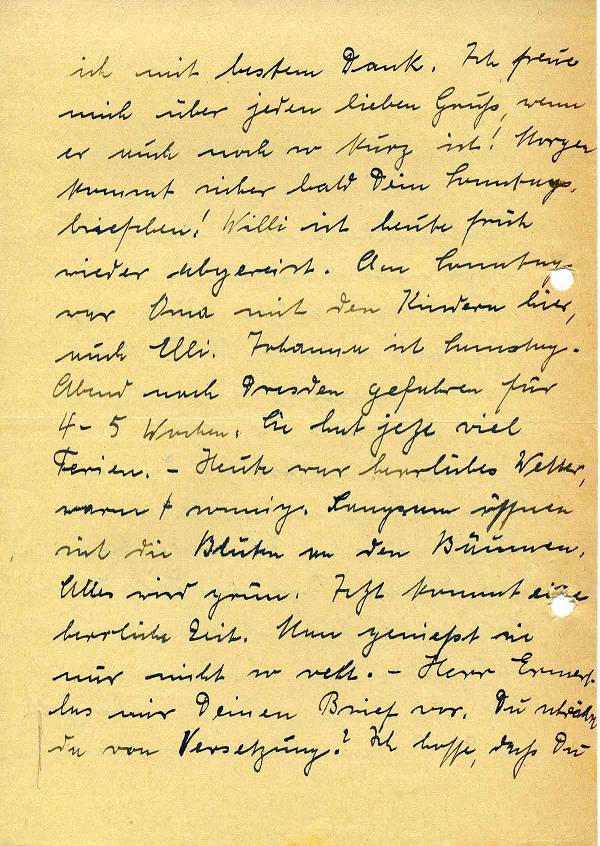 ich mit bestem Dank. Ich freue
mich über jeden lieben Gruß, wenn
er auch noch so kurz ist! Morgen
kommt sicher bald Dein Sonntags-
briefchen! Willi ist heute früh
wieder abgereist. Am Sonntag
war Oma mit den Kindern hier,
auch Elli. Johanna ist Samstag-
Abend nach Dresden gefahren für
4-5 Wochen. Sie hat jetzt viel
Ferien. - Heute war herrliches Wetter,
warm & sonnig. Langsam öffnen
sich die Blüten an den Bäumen.
Alles wird grün. Jetzt kommt eine
herrliche Zeit. Man genießt sie
nur nicht so recht. - Herr
las mir Deinen Brief vor. Du
da von Versetzung? Ich hoffe, daß Du